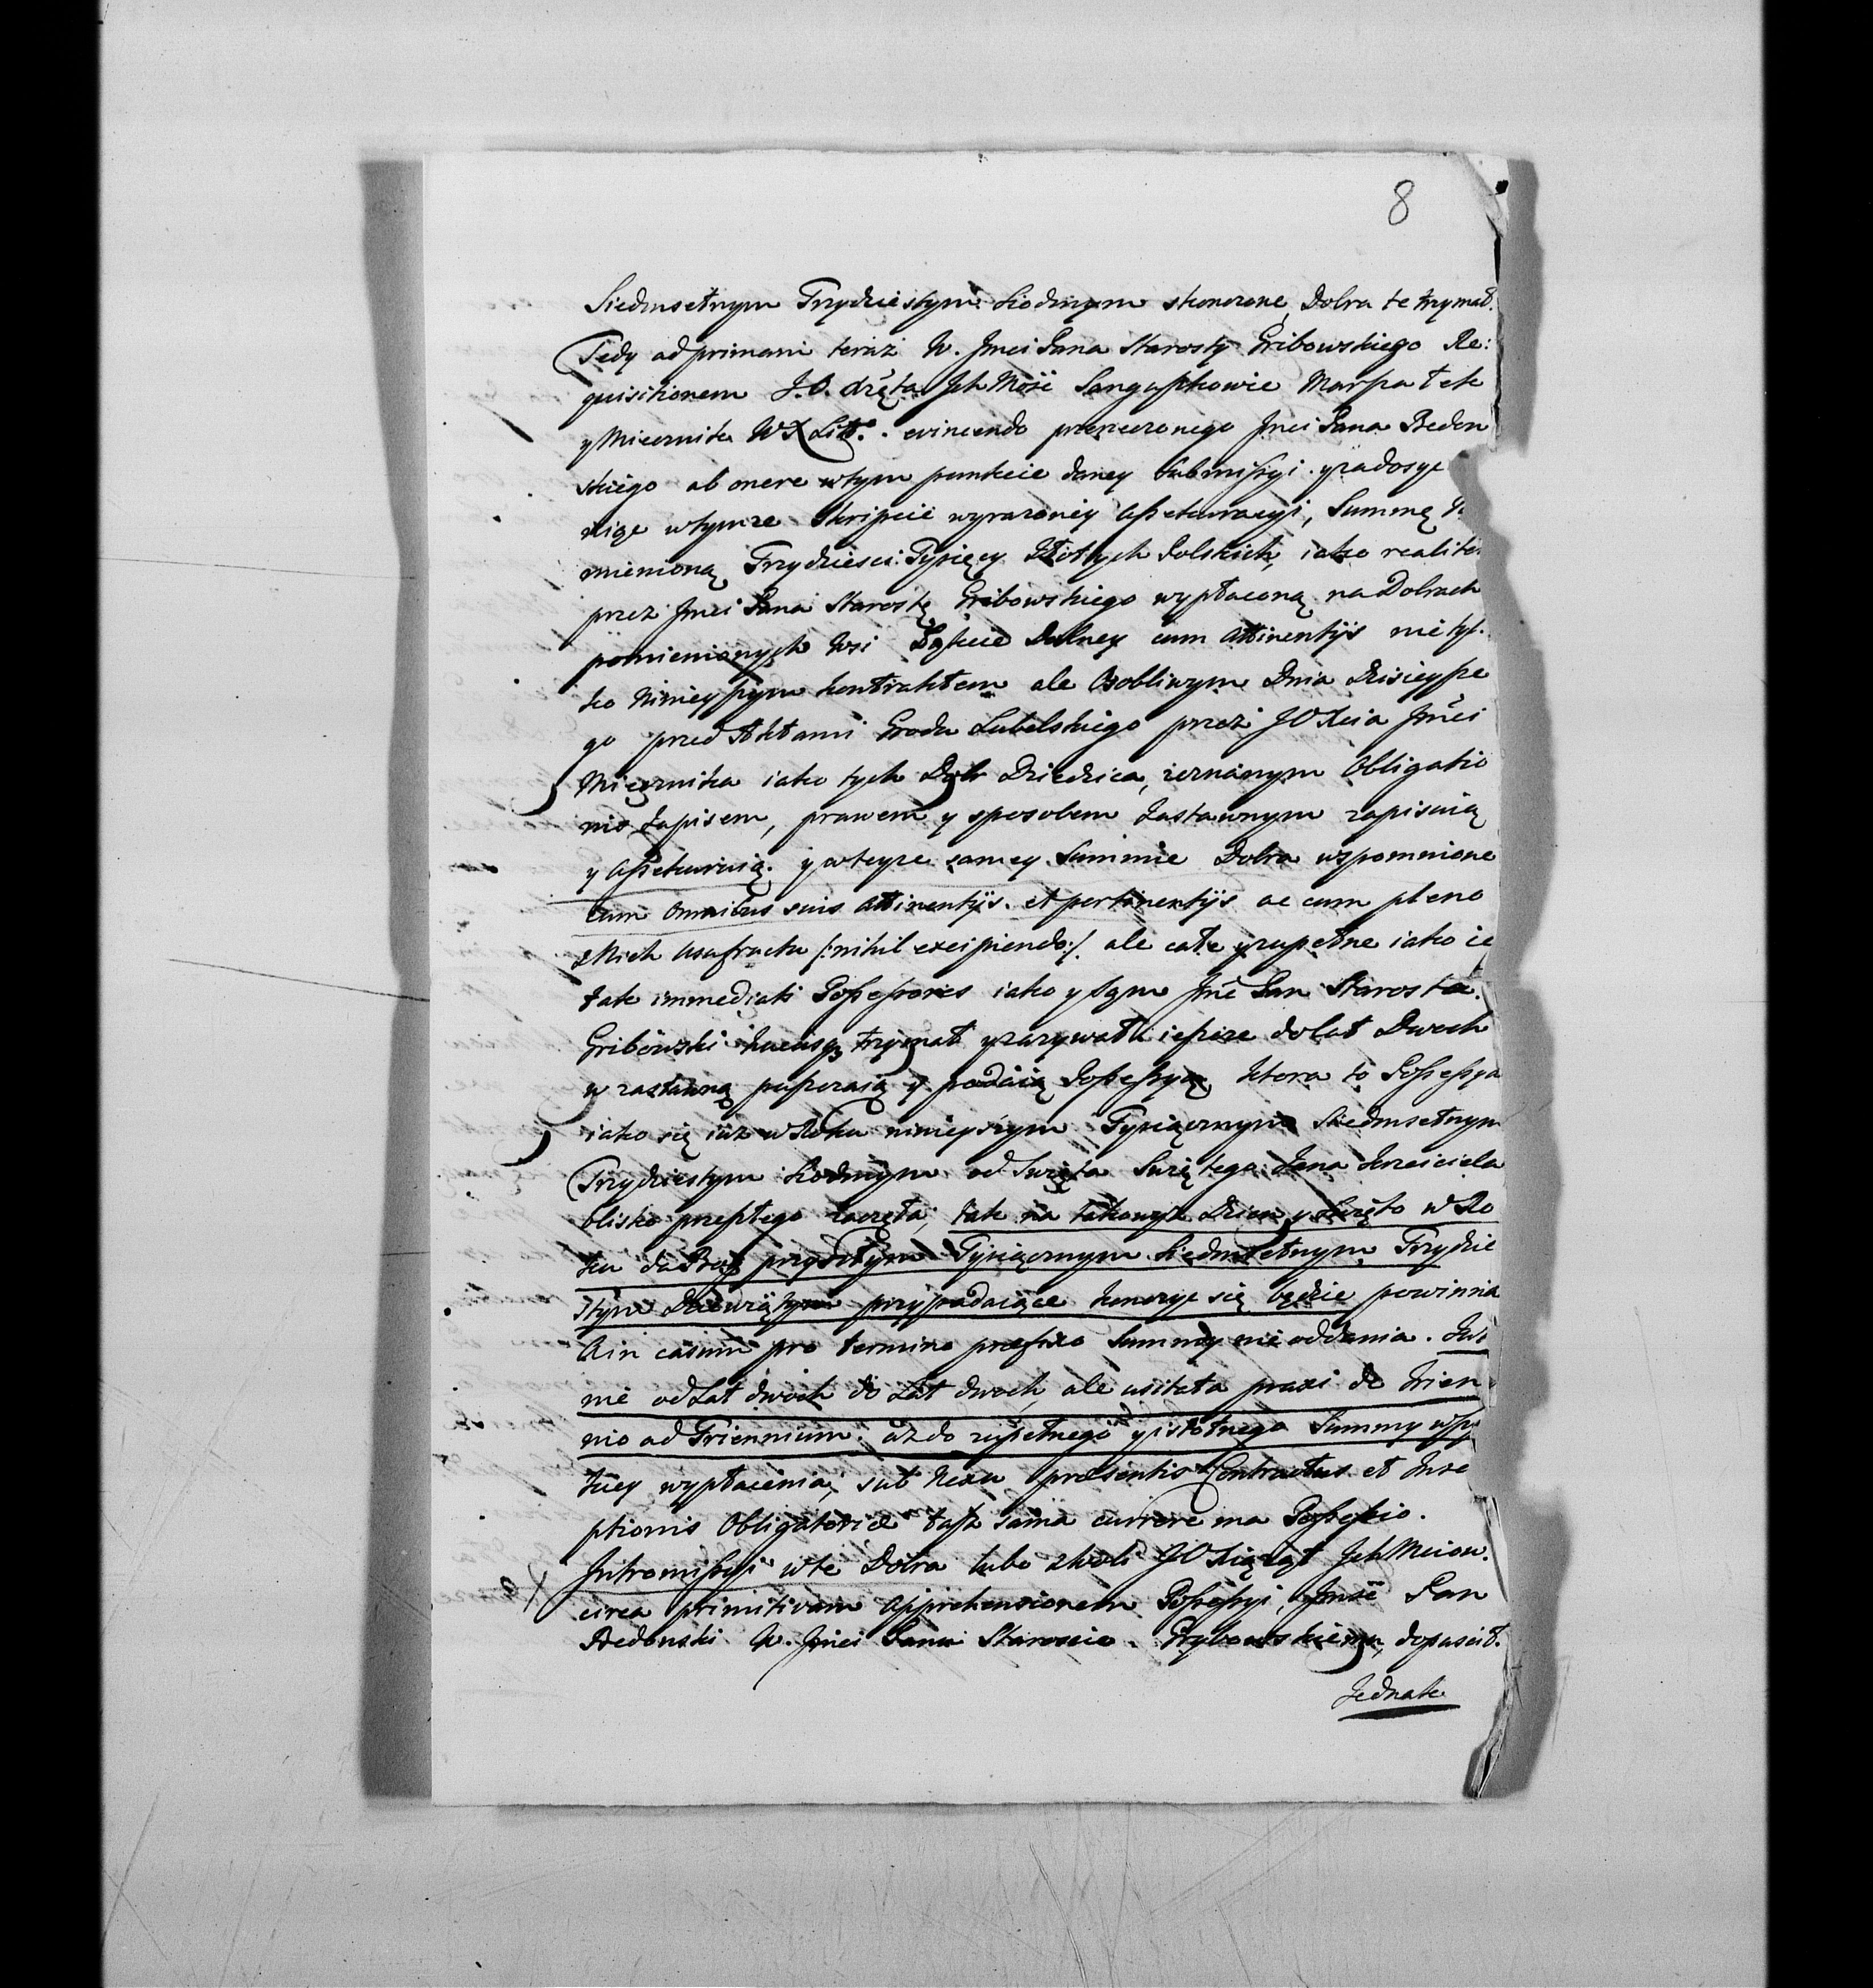 8
Siedmsetnym Trzydziestym Siodmym skonczone, Dobra te trzymał.
Tedy ad primam teraz W. Jmci Pana Starosty Gribowskiego Re:
quisitionem J.O. Jch Mość Sanguszkowie Marszałek
y Miecznik W X Litt. evincendo przerzeczonego Jmci Pana Bedon
skiego ab onere w tym punkcie daney submissyi. y zadosyc
niąc w tymze Skripcie wyrazoney assekuracyi, Summę
mienioną Trzydziesci Tysięcy Złotych Polskich, iako realiter
przez Jmci Pana Starostę Gribowskiego wypłaconą na Dobrach
pomienionych Wsi Dolney cum attinentijs nie tyl
ko Ninieyszym kontraktem ale Osobliwym Dnia Dzisieysze
go przed Aktami Grodu Lubelskiego przez JO Xcia Jmci
Miecznika iako tych Dobr Dziedzica, zeznanym Obligatio
nis Zapisem, prawem y sposobem Zastawnym zapisuią
y assekuruią. y w teyze samey Summie Dobra wspomnione
cum omnibus suis attinentijs. et pertinentijs ac cum pleno
z Nich usufructu /:nihil excipiendo:/ ale całe y zupełne iako ie
tak immediati Possessores iako y sam Jmć Pan Starosta
Gribowski trzymał y zazywał ieszcze do lat Dwoch
w zastawną puszczaią y podaią Possessyą, Ktora to Possessya
iako się iuz w Roku ninieyszym Tysiącznym Siedmsetnym
Trzydziestym Siodmym od Swięta Swiętego Jana Krzciciela
blisko przeszłego zaczęła, tak na takowyz Dzien y Swięto w Ro
ku da Bog przyszłym Tysiącznym Siedmsetnym Trzydzie
stym Dziewiątym przypadaiące konczyc się będzie powinna
A in casum pro termino præfixo Summy nie oddania. Juz
nie od Lat dwoch do Lat dwoch, ale usitata praxi de Trien
nio ad Triennium. az do zupełnego y istotnego Summy
wypłacenia, sub Nexu præsentis Contractus et Inscri
ptionis Obligatoriæ taz sama currere ma Possessio.
Intromissyi w te Dobra lubo z woli JO Xiążąt Jch Mciow.
circa primitivam apprehensionem Possessyi, Jmść Pan
Bedonski W. Jmci Panu Staroscie Grybowskiemu, dopuscił.
Jednak